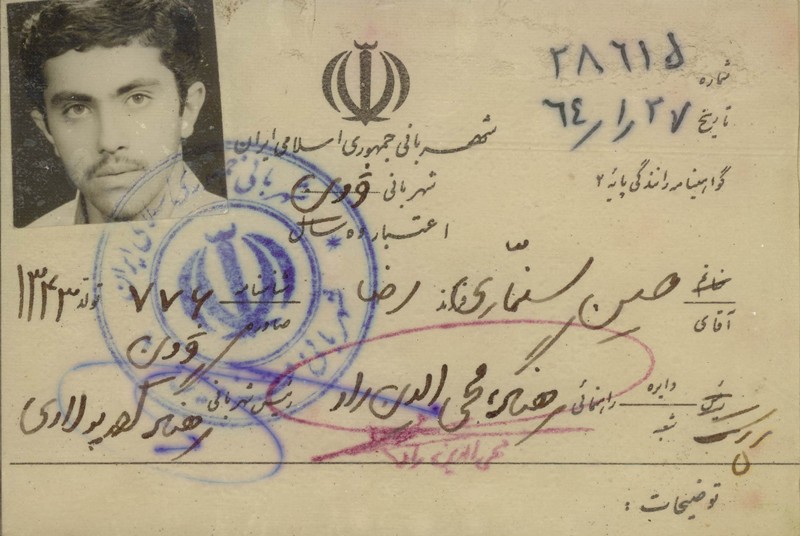 شماره ۲۸۶۱۵
تاریخ ۶۴/۱/۲۷
شهربانی جمهوری اسلامی ایران
گواهینامه رانندگی پایه ۲
شهربانی
اعتبار ده سال
خانم آقای حسین سنماری فرزند رضا شناسنامه ۷۷۶ تولد ۱۳۴۳
صادره
رئیس دایره شعبه راهنمائی محی الدین راد رئیس شهربانی
محی الدین راد
توضیحات :